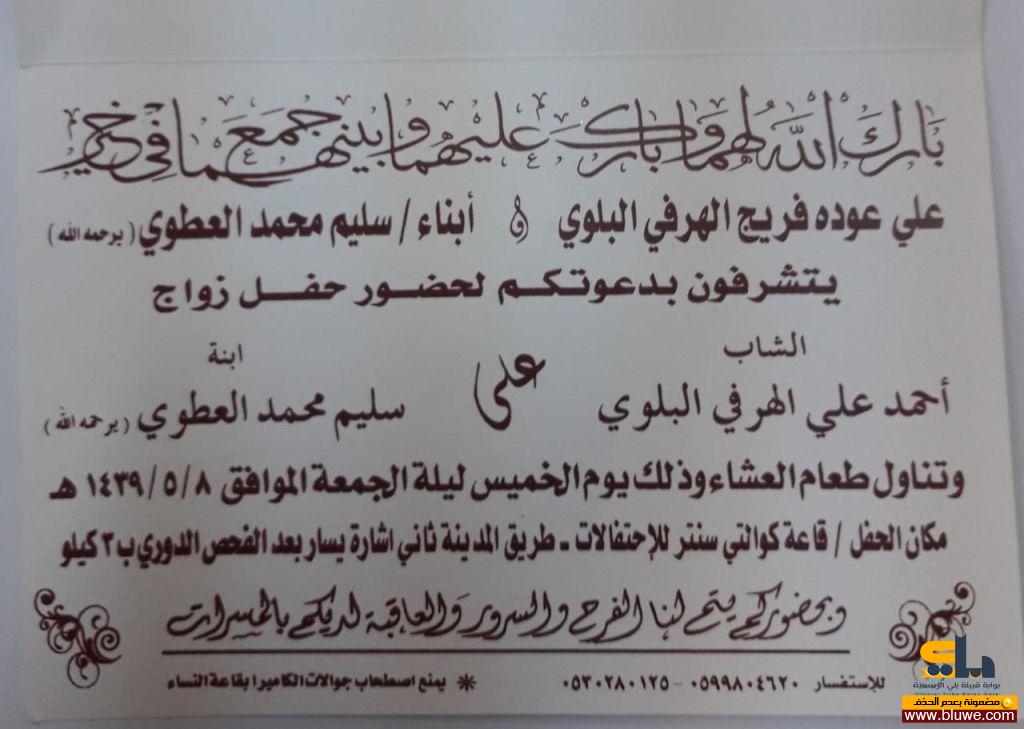 بَارك الله لهما وبارك عليهما وجمع بينهما في خير
علي عوده فريج الهرفي البلوي و أبناء / سليم محمد العطوي ( يرحمه الله )
يتشرفون بدعوتكم لحضور حفل زواج
الشاب
ابنة
أحمد علي الهرفي البلوي على سليم محمد العطوي ( يرحمه الله )
وتناول طعام العشاء وذلك يوم الخميس ليلة الجمعة الموافق ١٤٣٩/٥/٨ هـ
مكان الحفل / قاعة كوالتي سنتر للإحتفالات - طريق المدينة ثاني اشارة يسار بعد الفحص الدوري ب٣ كيلو
وبحضوركم يتم لنا الفرح والسرور والعاقبة لديكم بالمسرات
للإستفسار ٠٥٩٩٨٠٤٦٢٠ - ٠٥٣٠٢٨٠١٢٥ * يمنع اصطحاب جوالات الكاميرا بقاعة النساء
بلي
بوابة قبيلة بلي الرسمية
مضمونة بعدم الحذف
www.bluwe.com